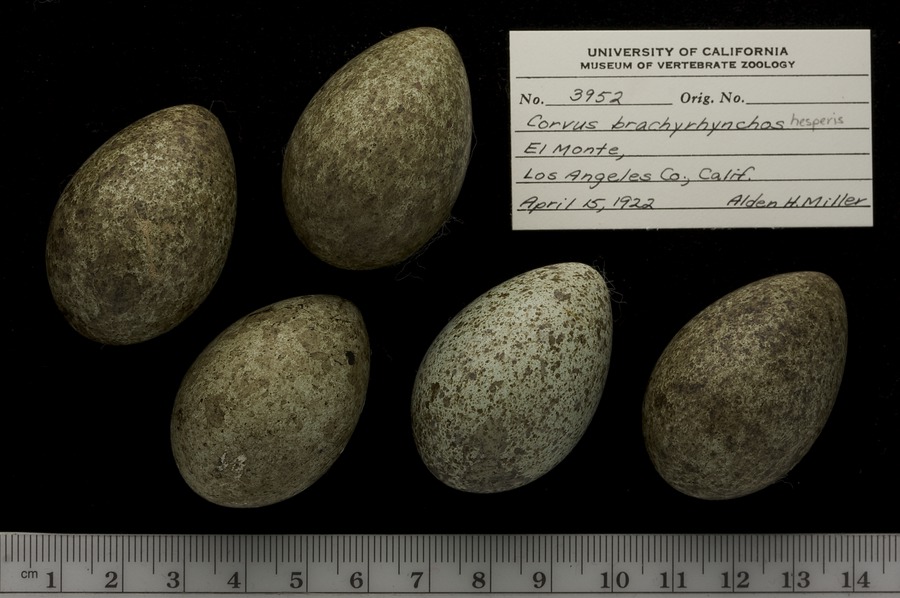 UNIVERSITY OF CALIFORNIA
MUSEUM OF VERTEBRATE ZOOLOGY
No. 3952 Orig. No.
Corvus brachyrhynchos hesperis
El Monte,
Los Angeles Co., Calif.
April 15, 1922 Alden H. Miller
cm 1 2 3 4 5 6 7 8 9 10 11 12 13 14